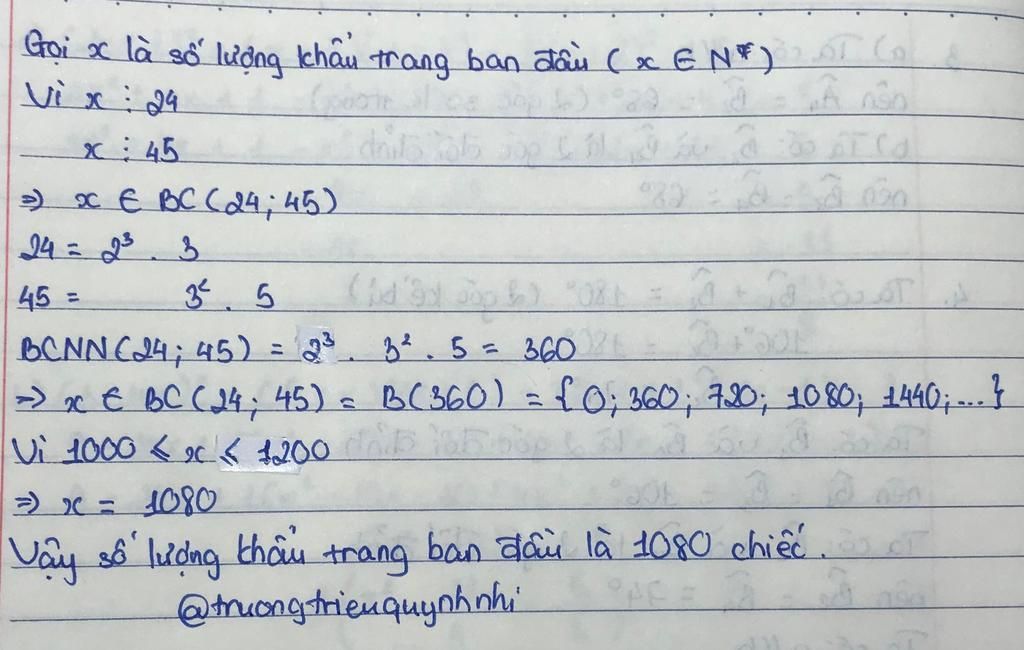 Gọi x là số lượng khẩu trang ban đầu ( x ∈ N* )
Vì x ⋮ 24
x ⋮ 45
⇒ x ∈ BC(24; 45)
24 = 2³ . 3
45 = 3² . 5
BCNN(24; 45) = 2³ . 3² . 5 = 360
⇒ x ∈ BC(24; 45) = B(360) = {0; 360; 720; 1080; 1440;...}
Vì 1000 ⩽ x ⩽ 1200
⇒ x = 1080
Vậy số lượng khẩu trang ban đầu là 1080 chiếc.
@truongtrieuquynhnhi